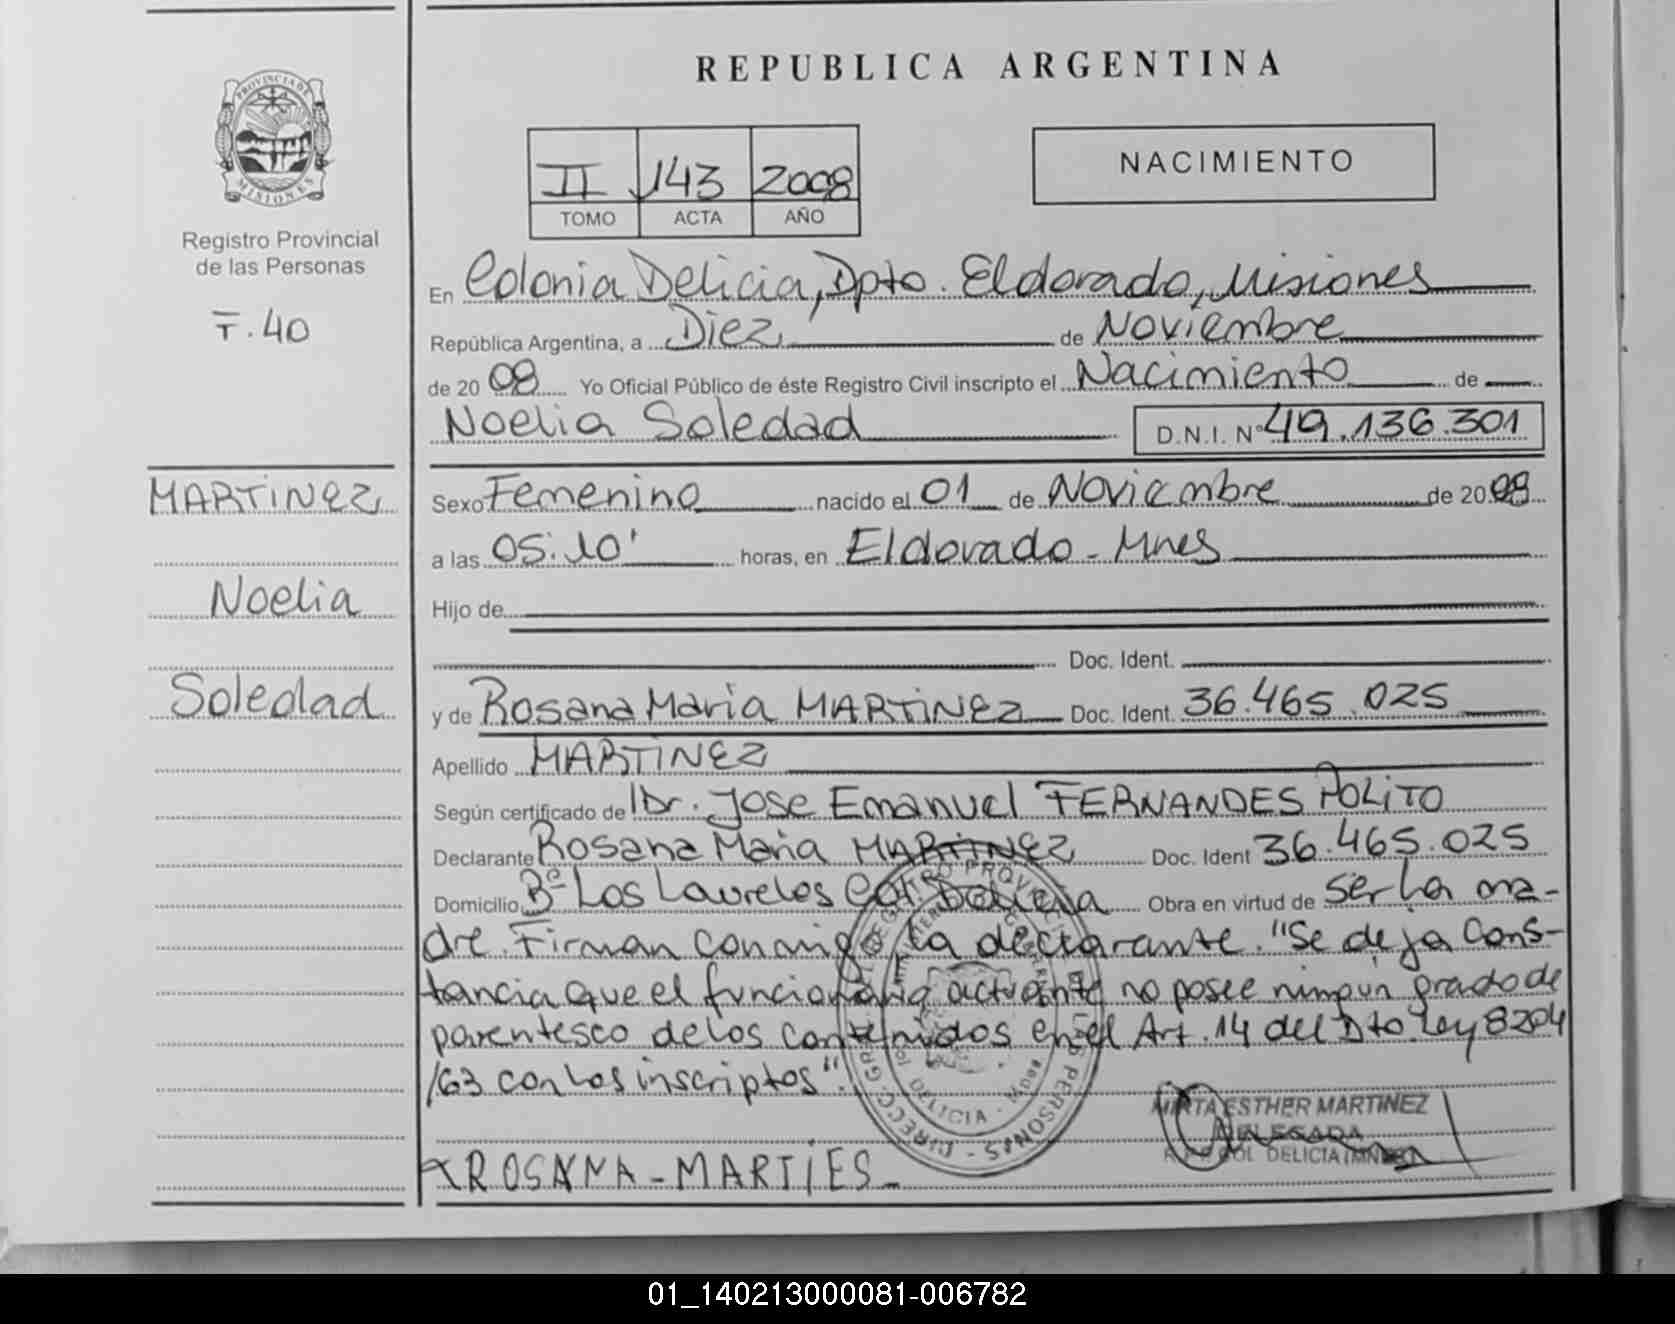 REPUBLICA ARGENTINA
PROVINCIA DE
MISIONES
Registro Provincial
de las Personas
T.40
II 143 2008
TOMO ACTA AÑO
NACIMIENTO
En Colonia Delicia, Dpto. Eldorado, Misiones
República Argentina, a Diez de Noviembre
de 20 08 Yo Oficial Público de éste Registro Civil inscripto el Nacimiento de
Noelia Soledad D.N.I. Nº 49.136.301
MARTINEZ
Noelia
Soledad
Sexo Femenino nacido el 01 de Noviembre de 20 08
a las 05:10' horas, en Eldorado - Mnes
Hijo de
Doc. Ident.
y de Rosana Maria MARTINEZ Doc. Ident. 36.465.025
Apellido MARTINEZ
Según certificado de Dr. Jose Emanuel FERNANDES POLITO
Declarante Rosana Maria MARTINEZ Doc. Ident 36.465.025
Domicilio Bº Los Laureles Col. Delicia Obra en virtud de ser la ma-
dre. Firman conmigo la declarante. "Se deja Cons-
tancia que el funcionario actuante no posee ningun grado de
parentesco de los contenidos en el Art. 14 del Dto. Ley 8204
/63 con los inscriptos".
MIRTA ESTHER MARTINEZ
DELEGADA
COL DELICIA
x ROSANA - MARTIES -
DELICIA
01_140213000081-006782